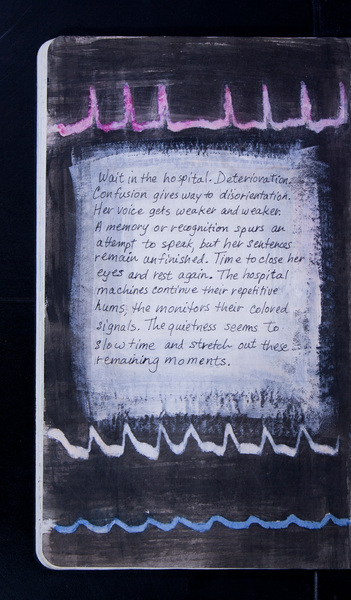 Wait in the hospital. Deterioration.
Confusion gives way to disorientation.
Her voice gets weaker and weaker.
A memory or recognition spurs an
attempt to speak, but her sentences
remain unfinished. Time to close her
eyes and rest again. The hospital
machines continue their repetitive
hums, the monitors their colored
signals. The quietness seems to
slow time and stretch out these
remaining moments.